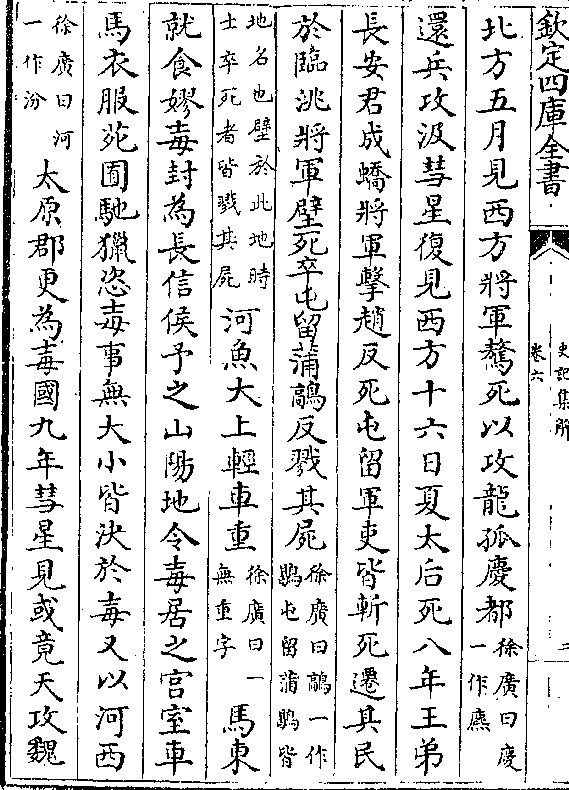 欽定四庫全書
史記集解
卷六
二
北方五月見西方將軍驁死以攻龍孤慶都徐廣曰慶一作麃
還兵攻汲彗星復見西方十六日夏太后死八年王弟
長安君成蟜將軍擊趙反死屯留軍吏皆斬死遷其民
於臨洮將軍壁死卒屯留蒲鶮反戮其屍徐廣曰鶮一作鶡屯留蒲鶡皆
地名也壁於此地時士卒死者皆戮其屍河魚大上輕車重徐廣曰一無重字馬東
就食嫪毐封為長信侯予之山陽地令毐居之宮室車
馬衣服苑囿馳獵恣毐事無大小皆決於毐又以河西
徐廣曰河一作汾太原郡更為毐國九年彗星見或竟天攻魏